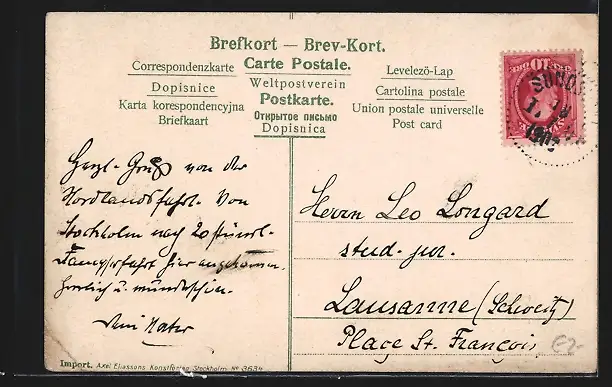 Brefkort — Brev-Kort.
Correspondenzkarte Carte Postale. Levelezö-Lap
Dopisnice Weltpostverein Cartolina postale
Karta korespondencyjna Postkarte. Union postale universelle
Briefkaart Открытое письмо Post card
Dopisnica
10
SUND
Herzl. Gruß von der
Nordlandsfahrt. Von
Stockholm nach 20 stündl.
Dampferfahrt hier angekommen.
Herrlich u. wunderschön.
Dein Vater
Herrn Leo Longard
stud. jur.
Lausanne (Schweiz)
Place St. François
€2-
Import. Axel Eliassons Konstförlag Stockholm Nº 3634